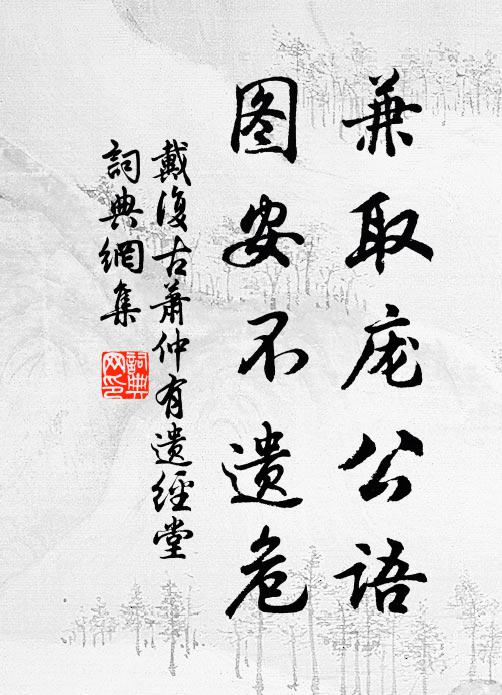 兼取庞公语
图安不遗危
戴復古蕭仲有遗經堂
詞典網集
詞典网印